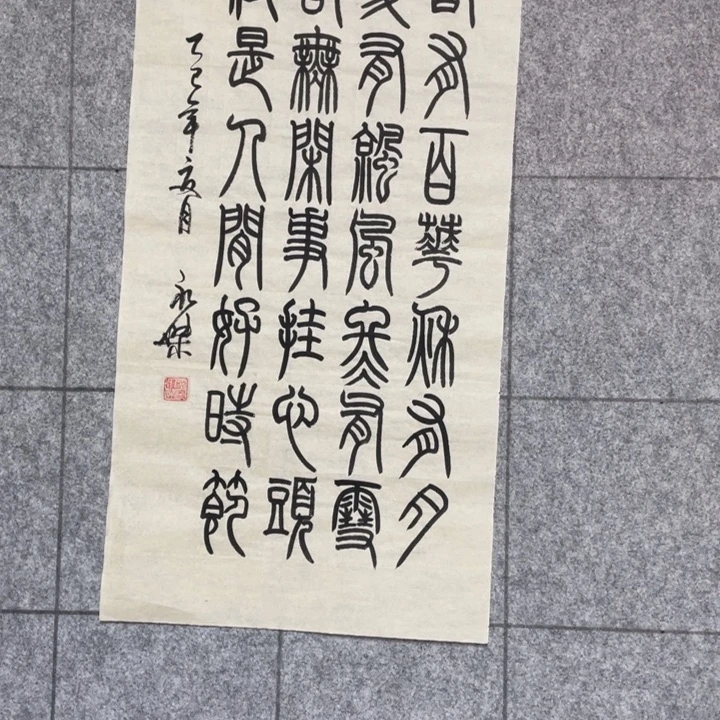 有百華秋有月
有涼風冬有雪
無閑事挂心頭
是人間好時節
乙巳年夏月 永傑